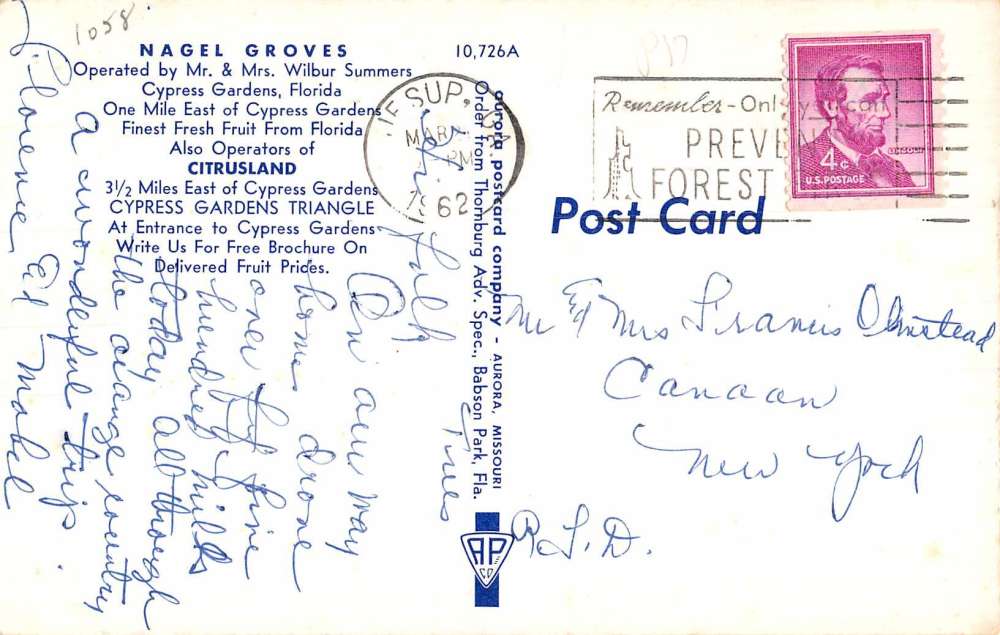 1058
NAGEL GROVES
Operated by Mr. & Mrs. Wilbur Summers
Cypress Gardens, Florida
One Mile East of Cypress Gardens
Finest Fresh Fruit From Florida
Also Operators of
CITRUSLAND
3½ Miles East of Cypress Gardens
CYPRESS GARDENS TRIANGLE
At Entrance to Cypress Gardens
Write Us For Free Brochure On
Delivered Fruit Prices.
10,726A
Tues
Hi folk
On our way
home drove
over
hundred miles
today all through
the orange country
a wonderful trip.
Florence Ed Mabel
aurora postcard company - AURORA, MISSOURI
Order from Thornburg Adv. Spec., Babson Park, Fla.
APCO
JESUP, GA
MAR
PM
1962
Remember - Only you can
PREVEN
FOREST
4¢
LINCOLN
U.S. POSTAGE
Post Card
Mr Ed Mrs Francis Olmstead
Canaan
New York
R.F.D.